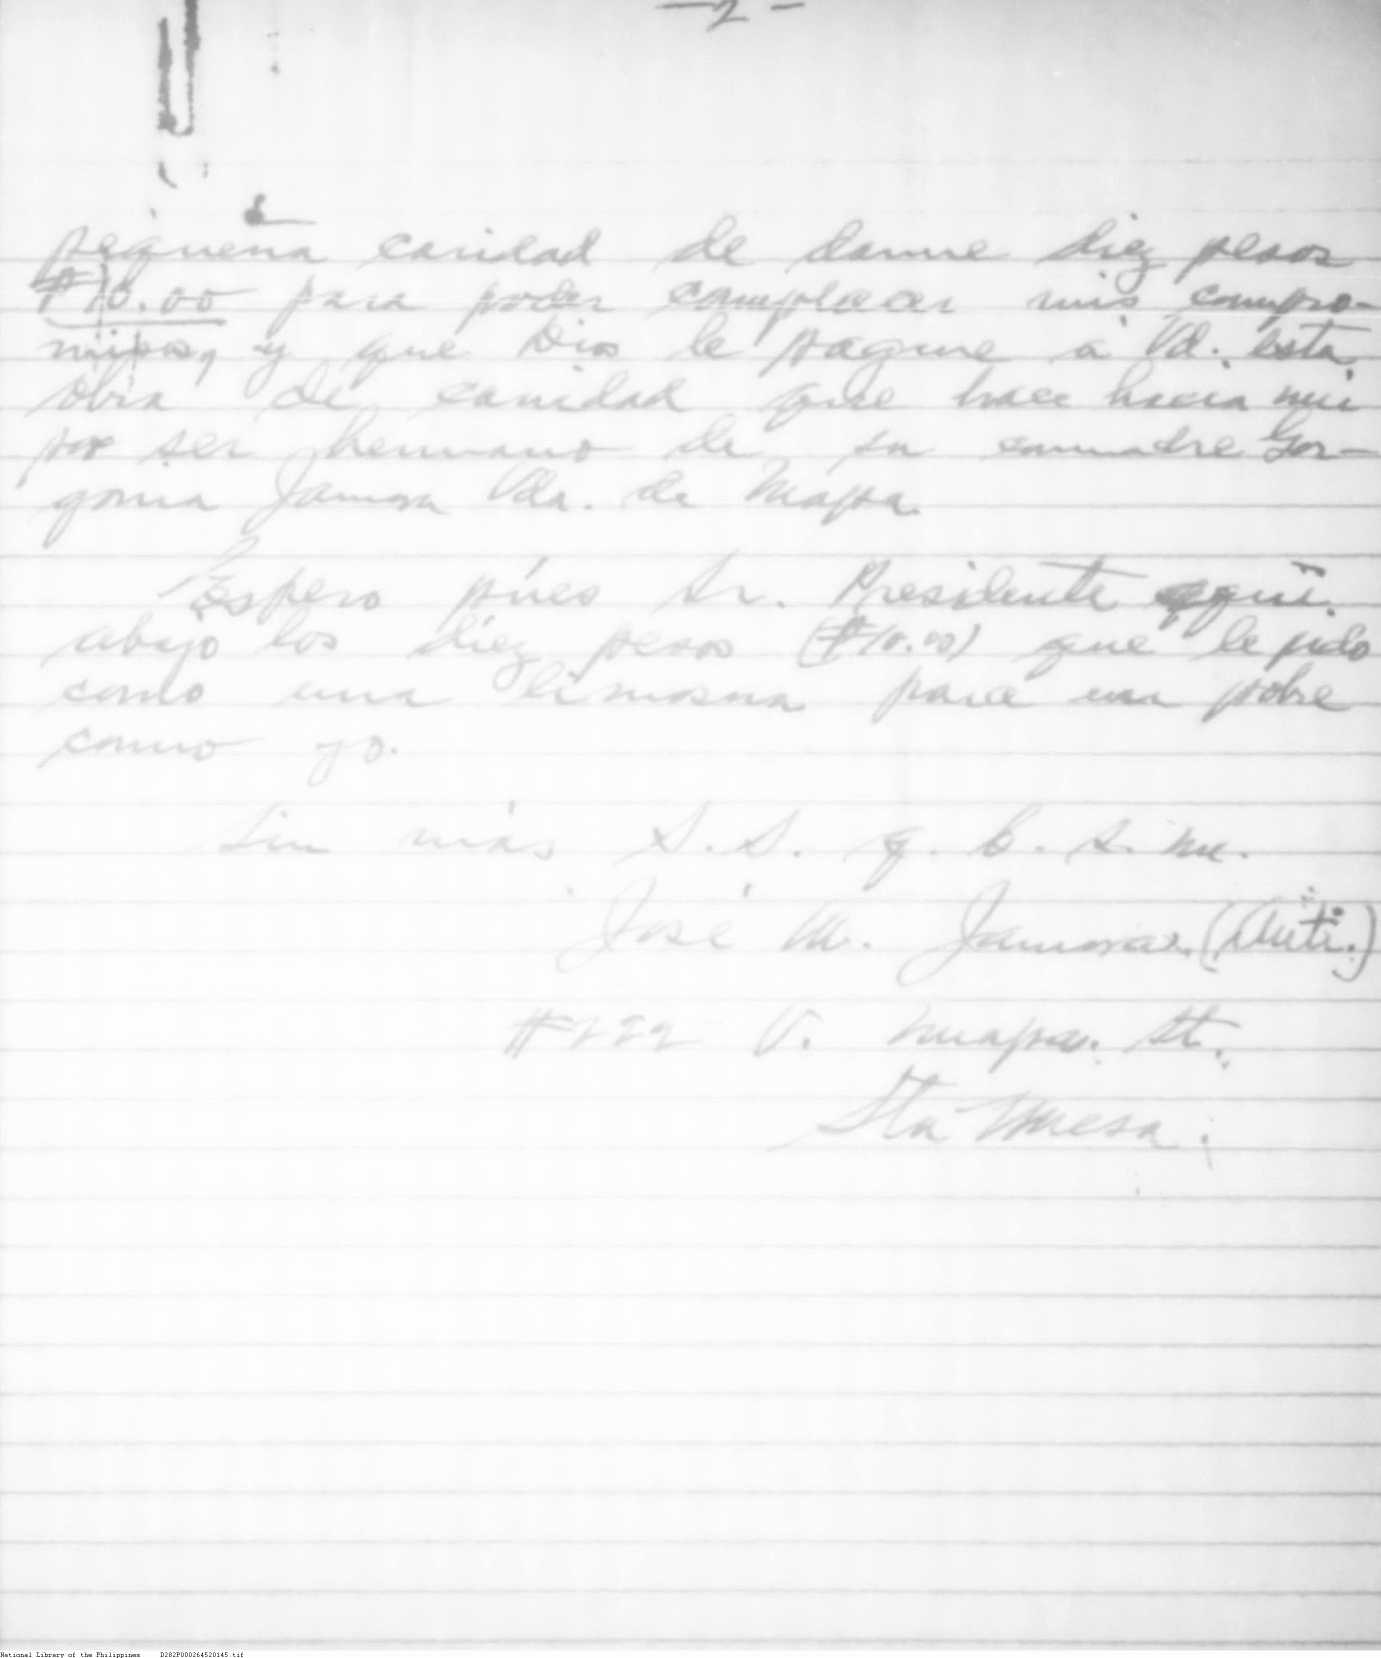 -2-
pequeña caridad de darme diez pesos
₱10.00 para poder complacer mis compro-
misos, y que Dios le pague á Vd. esta
obra de caridad que hace hacia mi
por ser hermano de su comadre Gor-
gonia Jamora Vda. de Mapa.
Espero púes Sr. Presidente aqui
abajo los diez pesos (₱10.00) que le pido
como una limosna para un pobre
como yo.
Sin más S. S. q. b. s. m.
José M. Jamora (Aiti.)
#222 V. Mapa. St.
Sta Mesa.
National Library of the Philippines D282P000264520145.tif